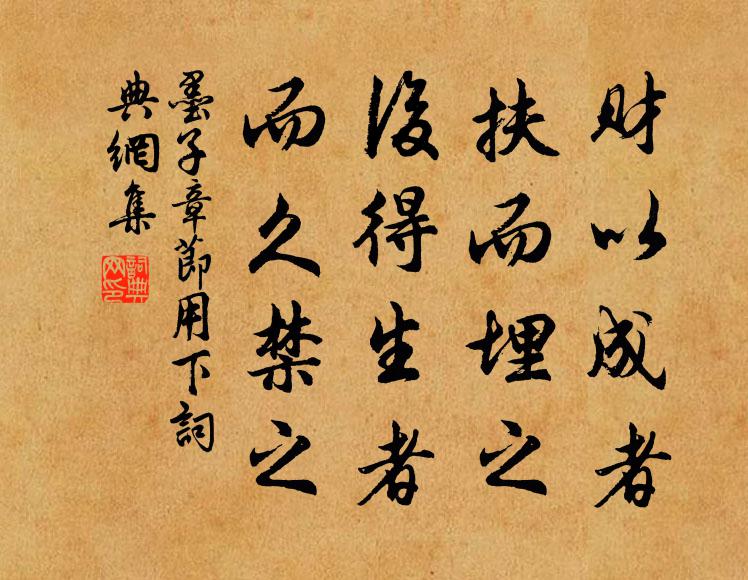 财以成者
扶而埋之
後得生者
而久禁之
墨子章節用下詞
典網集
詞典
网印